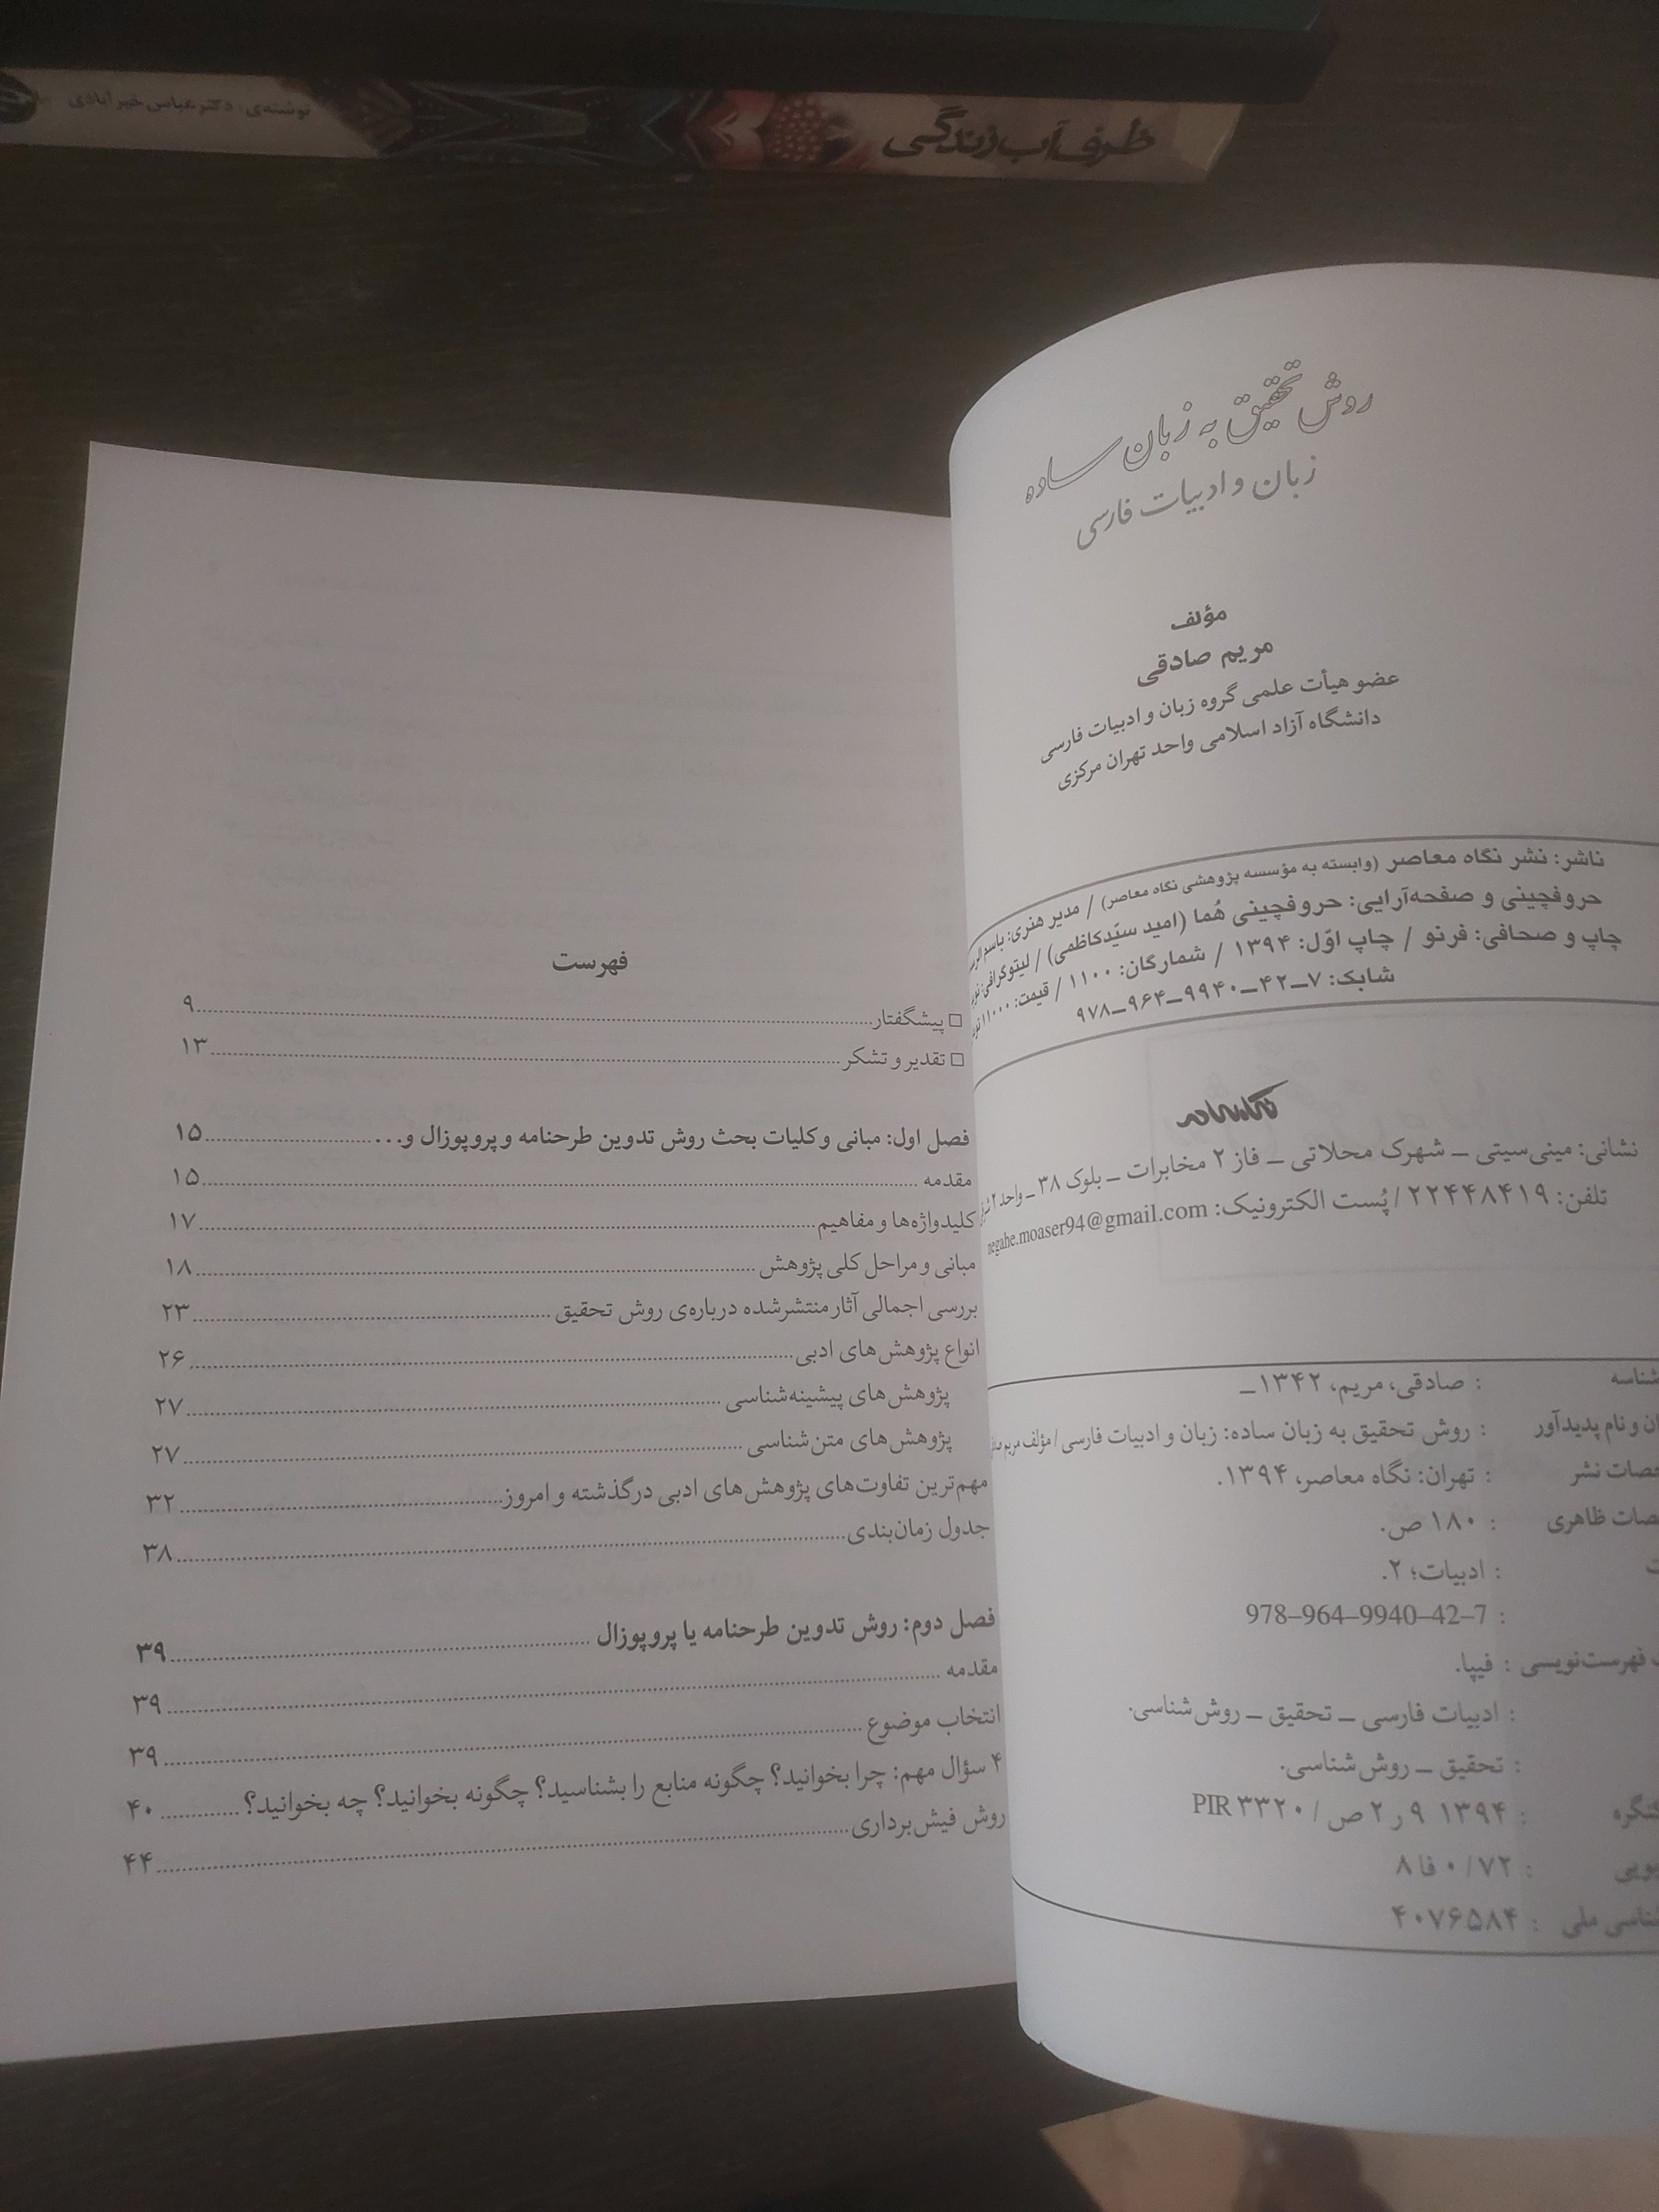 ظرف آب زندگی
نوشته‌ی: دکتر عباس خیرآبادی
روش تحقیق به زبان ساده
زبان و ادبیات فارسی
مؤلف
مریم صادقی
عضو هیأت علمی گروه زبان و ادبیات فارسی
دانشگاه آزاد اسلامی واحد تهران مرکزی
ناشر: نشر نگاه معاصر (وابسته به مؤسسه پژوهشی نگاه معاصر) / مدیر هنری: باسم
حروفچینی و صفحه‌آرایی: حروفچینی هُما (امید سیّدکاظمی) / لیتوگرافی:
چاپ و صحافی: فرنو / چاپ اوّل: ۱۳۹۴ / شمارگان: ۱۱۰۰ / قیمت: ۱۱۰۰۰
شابک: ۷-۴۲-۹۹۴۰-۹۶۴-۹۷۸
نگاه معاصر
نشانی: مینی‌سیتی – شهرک محلاتی – فاز ۲ مخابرات – بلوک ۳۸ – واحد ۲
تلفن: ۲۲۴۴۸۴۱۹ / پُست الکترونیک: negahe.moaser94@gmail.com
شناسه : صادقی، مریم، ۱۳۴۲–
ان و نام پدیدآور : روش تحقیق به زبان ساده: زبان و ادبیات فارسی / مؤلف مریم
صات نشر : تهران: نگاه معاصر، ۱۳۹۴.
صات ظاهری : ۱۸۰ ص.
ت : ادبیات؛ ۲.
: 978–964–9940–42–7
فهرست‌نویسی : فیپا.
: ادبیات فارسی – تحقیق – روش‌شناسی.
: تحقیق – روش‌شناسی.
نگره : ۱۳۹۴ ۹ ر ۲ ص / PIR ۳۳۲۰
یویی : ۰/۷۲ فا ۸
ناسی ملی : ۴۰۷۶۵۸۴
فهرست
□ پیشگفتار ........ ۹
□ تقدیر و تشکر ........ ۱۳
فصل اول: مبانی و کلیات بحث روش تدوین طرحنامه و پروپوزال و... ........ ۱۵
مقدمه ........ ۱۵
کلیدواژه‌ها و مفاهیم ........ ۱۷
مبانی و مراحل کلی پژوهش ........ ۱۸
بررسی اجمالی آثار منتشرشده درباره‌ی روش تحقیق ........ ۲۳
انواع پژوهش‌های ادبی ........ ۲۶
پژوهش‌های پیشینه‌شناسی ........ ۲۷
پژوهش‌های متن‌شناسی ........ ۲۷
مهم‌ترین تفاوت‌های پژوهش‌های ادبی در گذشته و امروز ........ ۳۲
جدول زمان‌بندی ........ ۳۸
فصل دوم: روش تدوین طرحنامه یا پروپوزال ........ ۳۹
مقدمه ........ ۳۹
انتخاب موضوع ........ ۳۹
۴ سؤال مهم: چرا بخوانید؟ چگونه منابع را بشناسید؟ چگونه بخوانید؟ چه بخوانید؟ ........ ۴۰
روش فیش‌برداری ........ ۴۴